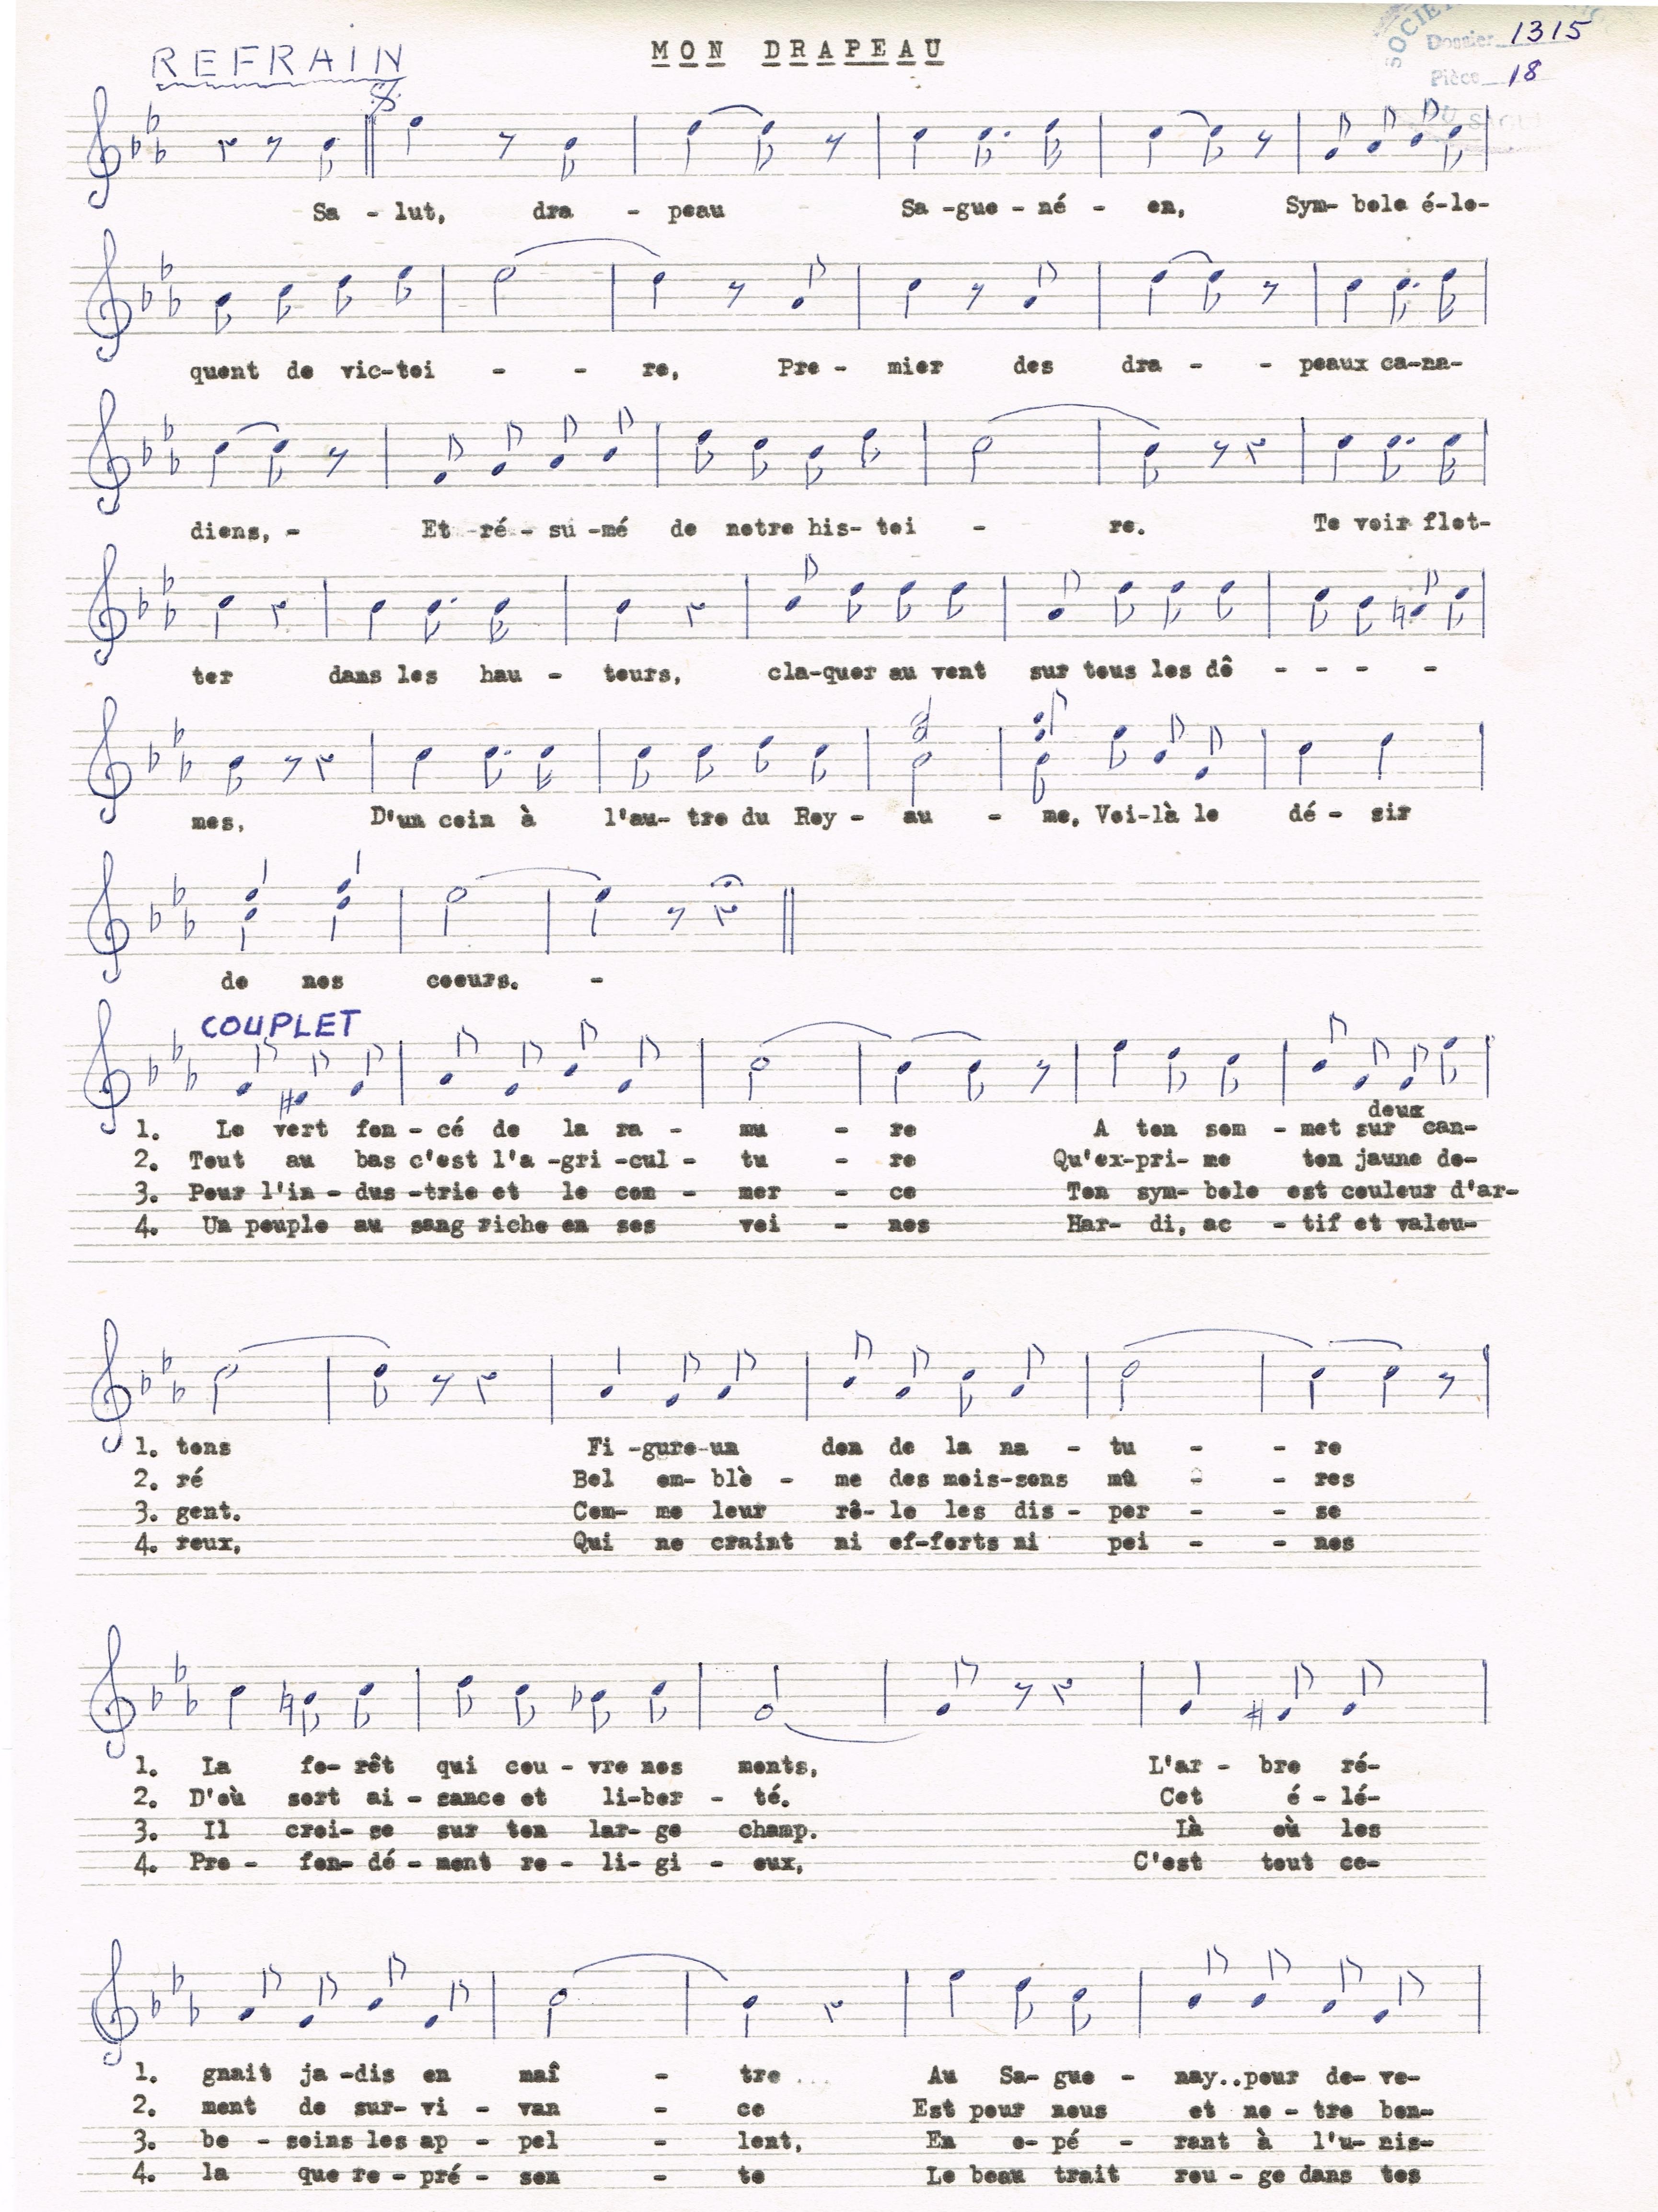 REFRAIN
MON DRAPEAU
Dossier 1315
Pièce 18
Sa - lut, dra - peau Sa -gue - né - en, Sym- bole é-lo-
quent de vic-toi - - re, Pre - mier des dra - - peaux ca-na-
diens, - Et ré - su -mé de notre his- toi - re. Te voir flot-
ter dans les hau - teurs, cla-quer au vent sur tous les dô - - - -
mes, D'un coin à l'au- tre du Roy - au - me, Voi-là le dé - sir
de nos coeurs. -
COUPLET
deux
1. Le vert fon - cé de la ra - mu - re A ton som - met sur can-
2. Tout au bas c'est l'a -gri -cul - tu - re Qu'ex-pri- me ton jaune do-
3. Pour l'in - dus -trie et le com - mer - ce Ton sym- bole est couleur d'ar-
4. Un peuple au sang riche en ses vei - nes Har- di, ac - tif et valeu-
1. tons Fi -gure-un don de la na - tu - - re
2. ré Bel em- blè - me des mois-sons mû - - res
3. gent. Com- me leur rô- le les dis - per - - se
4. reux, Qui ne craint ni ef-forts ni pei - - nes
1. La fo- rêt qui cou - vre nos monts, L'ar - bre ré-
2. D'où sort ai - sance et li-ber - té. Cet é - lé-
3. Il croi- se sur ton lar- ge champ. Là où les
4. Pro - fon- dé - ment re - li- gi - eux, C'est tout ce-
1. gnait ja -dis en maî - tre ... Au Sa- gue - nay..pour de- ve-
2. ment de sur- vi - van - ce Est pour nous et no - tre bon-
3. be - soins les ap - pel - lent, En o- pé - rant à l'u- nis-
4. la que re - pré - sen - te Le beau trait rou - ge dans tes